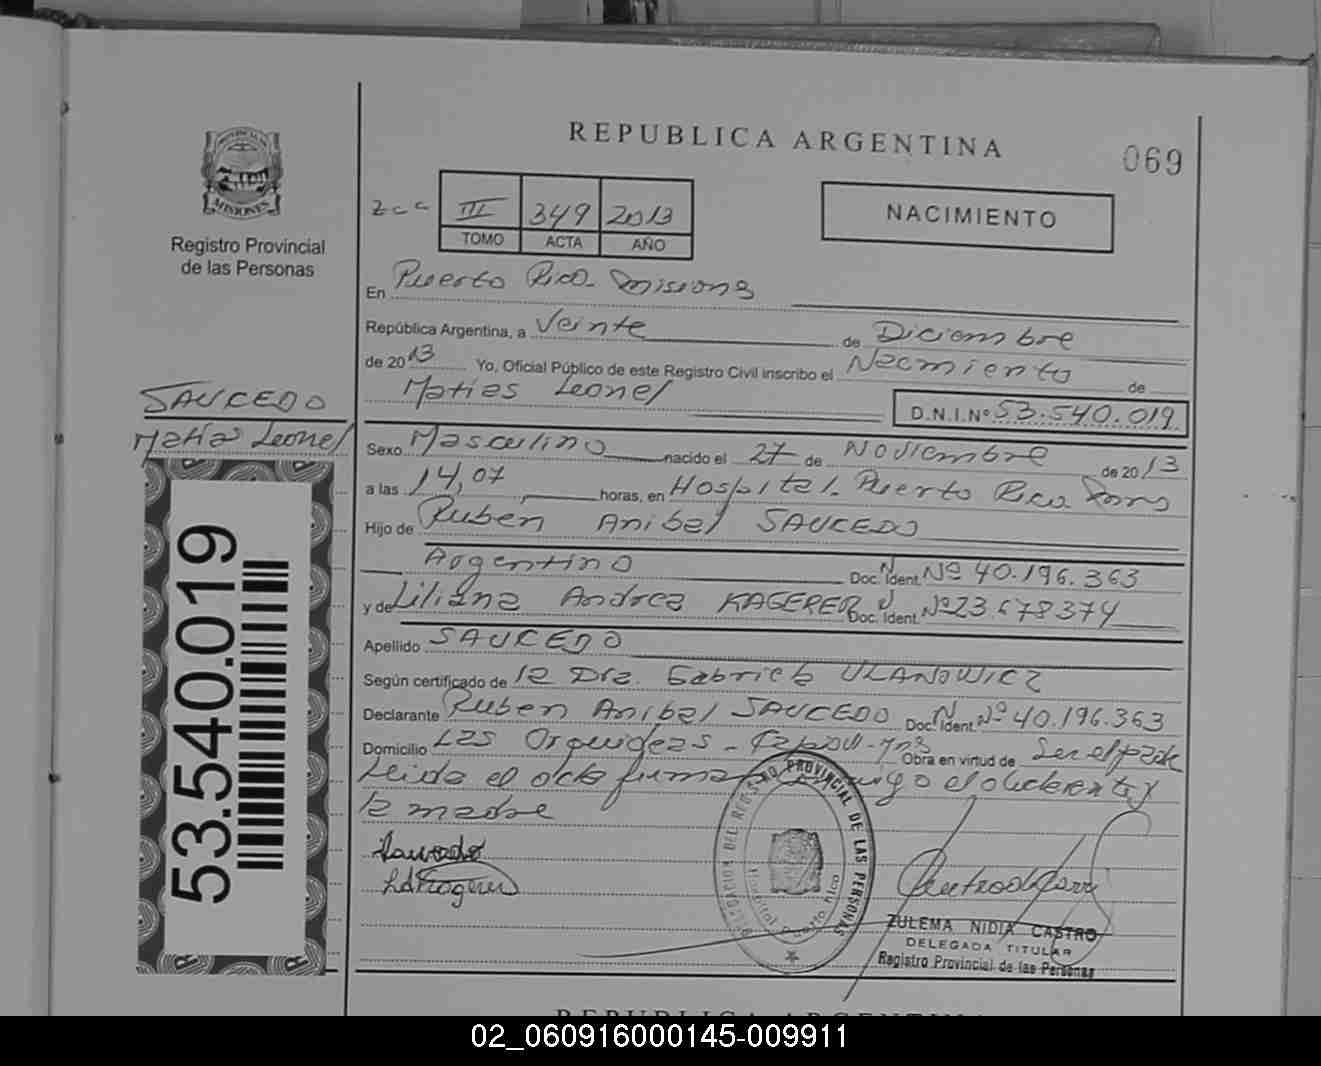 REPUBLICA ARGENTINA
069
PROVINCIA DE
MISIONES
Registro Provincial
de las Personas
III 349 2013
TOMO ACTA AÑO
NACIMIENTO
En Puerto Rico - Misiones
República Argentina, a Veinte de Diciembre
de 2013 Yo, Oficial Público de este Registro Civil inscribo el Nacimiento de
Matías Leonel
D.N.I.Nº 53.540.019
SAUCEDO
Matías Leonel
53.540.019
Sexo Masculino nacido el 27 de Noviembre de 2013
a las 14,07 horas, en Hospital - Puerto Rico
Hijo de Rubén Anibal SAUCEDO
Argentino Doc. Ident. Nº 40.196.363
y de Liliana Andrea KAGERER Doc. Ident. Nº 23.678374
Apellido SAUCEDO
Según certificado de la Dra. Gabriela ULANOWICZ
Declarante Ruben Anibal SAUCEDO Doc. Ident. Nº 40.196.363
Domicilio Las Orquideas - Obra en virtud de Ser el padre
Leida el acta firma el declarante y
la madre
Saucedo
DELEGACION DEL REGISTRO PROVINCIAL DE LAS PERSONAS
Hospital Puerto Rico
ZULEMA NIDIA CASTRO
DELEGADA TITULAR
Registro Provincial de las Personas
REPUBLICA ARGENTINA
02_060916000145-009911